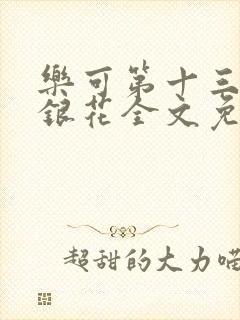 樂可第十三
銀花全文免
超甜的大力喵